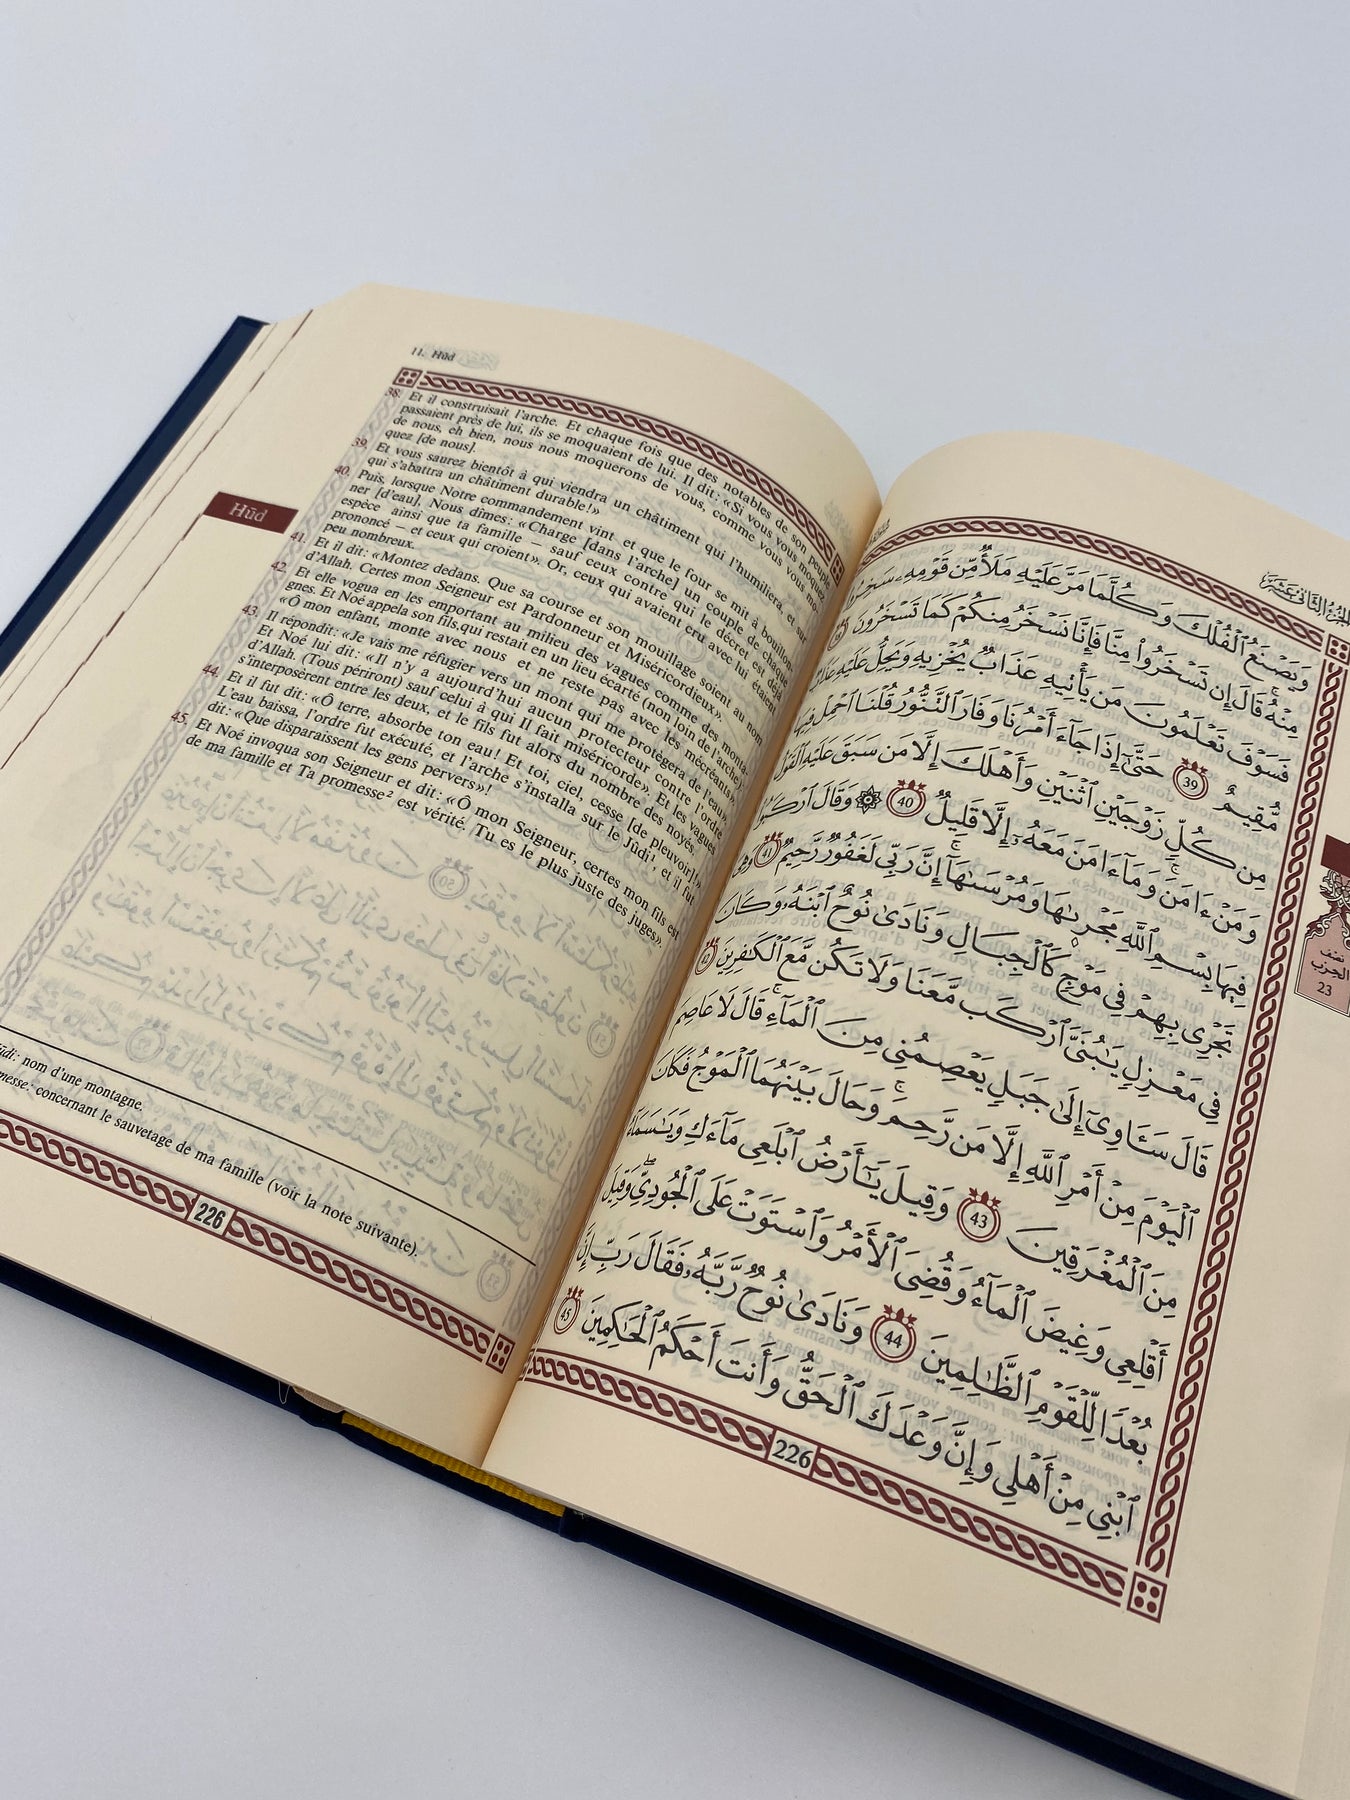 11. Hūd
Hūd
38. Et il construisait l'arche. Et chaque fois que des notables de son peuple
passaient près de lui, ils se moquaient de lui. Il dit: «Si vous vous moquez
de nous, eh bien, nous nous moquerons de vous, comme vous vous mo-
quez [de nous].
39. Et vous saurez bientôt à qui viendra un châtiment qui l'humiliera, et sur
qui s'abattra un châtiment durable!»
40. Puis, lorsque Notre commandement vint et que le four se mit à bouillon-
ner [d'eau], Nous dîmes: «Charge [dans l'arche] un couple de chaque
espèce ainsi que ta famille – sauf ceux contre qui le décret est déjà
prononcé – et ceux qui croient». Or, ceux qui avaient cru avec lui étaient
peu nombreux.
41. Et il dit: «Montez dedans. Que sa course et son mouillage soient au nom
d'Allah. Certes mon Seigneur est Pardonneur et Miséricordieux».
42. Et elle vogua en les emportant au milieu des vagues comme des monta-
gnes. Et Noé appela son fils, qui restait en un lieu écarté (non loin de l'arche):
«Ô mon enfant, monte avec nous et ne reste pas avec les mécréants».
43. Il répondit: «Je vais me réfugier vers un mont qui me protègera de l'eau».
Et Noé lui dit: «Il n'y a aujourd'hui aucun protecteur contre l'ordre
d'Allah. (Tous périront) sauf celui à qui Il fait miséricorde». Et les vagues
s'interposèrent entre les deux, et le fils fut alors du nombre des noyés.
44. Et il fut dit: «Ô terre, absorbe ton eau! Et toi, ciel, cesse [de pleuvoir]!»
L'eau baissa, l'ordre fut exécuté, et l'arche s'installa sur le Jûdi¹, et il fut
dit: «Que disparaissent les gens pervers»!
45. Et Noé invoqua son Seigneur et dit: «Ô mon Seigneur, certes mon fils est
de ma famille et Ta promesse² est vérité. Tu es le plus juste des juges».
nom d'une montagne.
concernant le sauvetage de ma famille (voir la note suivante).
226
الجزء الثاني عشر
وَيَصْنَعُ ٱلْفُلْكَ وَكُلَّمَا مَرَّ عَلَيْهِ مَلَأٌ مِّن قَوْمِهِۦ سَخِرُوا۟
مِنْهُ ۚ قَالَ إِن تَسْخَرُوا۟ مِنَّا فَإِنَّا نَسْخَرُ مِنكُمْ كَمَا تَسْخَرُونَ 38
فَسَوْفَ تَعْلَمُونَ مَن يَأْتِيهِ عَذَابٌ يُخْزِيهِ وَيَحِلُّ عَلَيْهِ عَذَابٌ
مُّقِيمٌ 39 حَتَّىٰٓ إِذَا جَآءَ أَمْرُنَا وَفَارَ ٱلتَّنُّورُ قُلْنَا ٱحْمِلْ فِيهَا
مِن كُلٍّ زَوْجَيْنِ ٱثْنَيْنِ وَأَهْلَكَ إِلَّا مَن سَبَقَ عَلَيْهِ ٱلْقَوْلُ
وَمَنْ ءَامَنَ ۚ وَمَآ ءَامَنَ مَعَهُۥٓ إِلَّا قَلِيلٌ 40 ۞ وَقَالَ ٱرْكَبُوا۟
فِيهَا بِسْمِ ٱللَّهِ مَجْر۪ىٰهَا وَمُرْسَىٰهَآ ۚ إِنَّ رَبِّى لَغَفُورٌ رَّحِيمٌ 41 وَهِىَ
تَجْرِى بِهِمْ فِى مَوْجٍ كَٱلْجِبَالِ وَنَادَىٰ نُوحٌ ٱبْنَهُۥ وَكَانَ
فِى مَعْزِلٍ يَـٰبُنَىَّ ٱرْكَب مَّعَنَا وَلَا تَكُن مَّعَ ٱلْكَـٰفِرِينَ 42
قَالَ سَـَٔاوِىٓ إِلَىٰ جَبَلٍ يَعْصِمُنِى مِنَ ٱلْمَآءِ ۚ قَالَ لَا عَاصِمَ
ٱلْيَوْمَ مِنْ أَمْرِ ٱللَّهِ إِلَّا مَن رَّحِمَ ۚ وَحَالَ بَيْنَهُمَا ٱلْمَوْجُ فَكَانَ
مِنَ ٱلْمُغْرَقِينَ 43 وَقِيلَ يَـٰٓأَرْضُ ٱبْلَعِى مَآءَكِ وَيَـٰسَمَآءُ
أَقْلِعِى وَغِيضَ ٱلْمَآءُ وَقُضِىَ ٱلْأَمْرُ وَٱسْتَوَتْ عَلَى ٱلْجُودِىِّ ۖ وَقِيلَ
بُعْدًا لِّلْقَوْمِ ٱلظَّـٰلِمِينَ 44 وَنَادَىٰ نُوحٌ رَّبَّهُۥ فَقَالَ رَبِّ إِنَّ
ٱبْنِى مِنْ أَهْلِى وَإِنَّ وَعْدَكَ ٱلْحَقُّ وَأَنتَ أَحْكَمُ ٱلْحَـٰكِمِينَ 45
نصف
الحزب
23
226